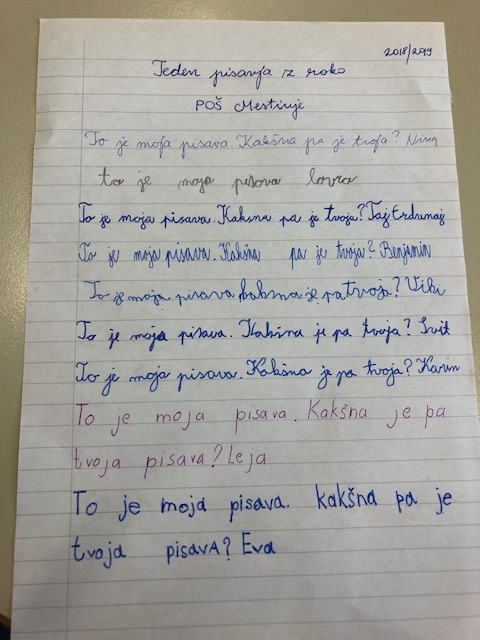 2018/2019
Teden pisanja z roko
POŠ Mestinje
To je moja pisava. Kakšna pa je tvoja? Nina
to je moja pisava lovro
To je moja pisava. Kakšna pa je tvoja? Taj Erdunaj
To je moja pisava. Kakšna pa je tvoja? Benjamin
To je moja pisava kakšna je pa tvoja? Viki
To je moja pisava. Kakšna je pa tvoja? Svit
To je moja pisava. Kakšna je pa tvoja? Karin
To je moja pisava. Kakšna je pa
tvoja pisava? Leja
To je moja pisava. kakšna pa je
tvoja pisavA? Eva